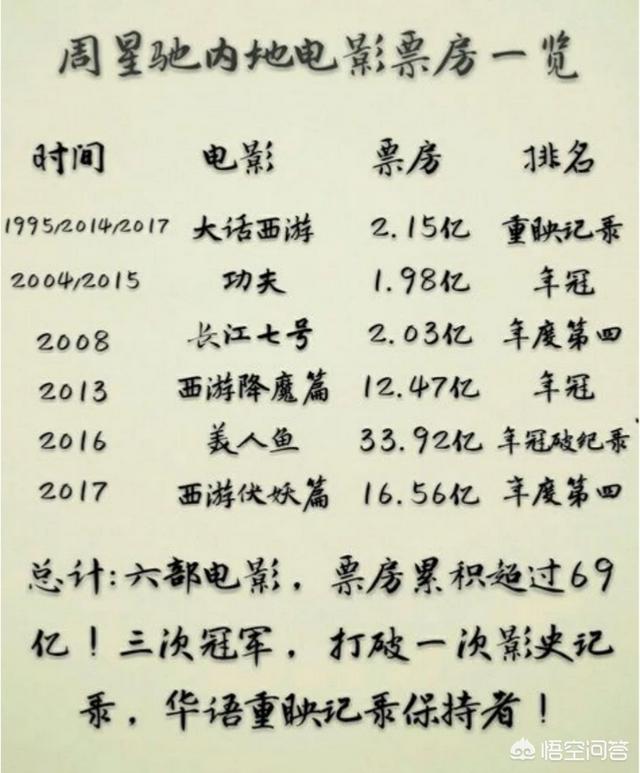 周星驰内地电影票房一览
时间 电影 票房 排名
1995/2014/2017 大话西游 2.15亿 重映记录
2004/2015 功夫 1.98亿 年冠
2008 长江七号 2.03亿 年度第四
2013 西游降魔篇 12.47亿 年冠
2016 美人鱼 33.92亿 年冠破纪录
2017 西游伏妖篇 16.56亿 年度第四
总计:六部电影，票房累积超过69
亿！三次冠军，打破一次影史记
录，华语重映记录保持者！
悟空问答